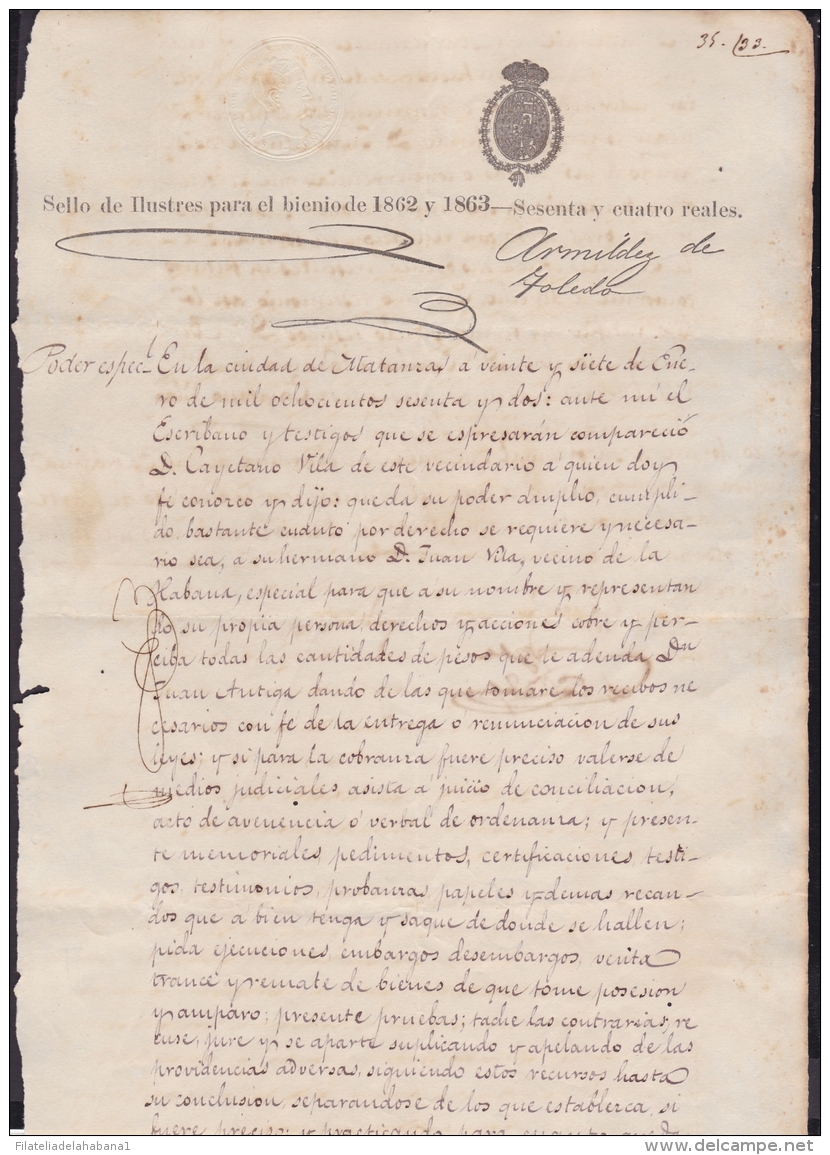 35. 133.
Sello de Ilustres para el bienio de 1862 y 1863—Sesenta y cuatro reales.
Armildez de
Toledo
Poder especl En la ciudad de Matanzas á veinte y siete de Ene-
ro de mil ochocientos sesenta y dos: ante mí el
Escribano y testigos que se espresarán compareció
D. Cayetano Vila de este vecindario á quien doy
fé conozco y dijo: que da su poder ámplio, cumpli-
do, bastante cuanto por derecho se requiere y necesa-
rio sea, a su hermano D. Juan Vila, vecino de la
Habana, especial para que á su nombre y representan
do su propia persona, derechos y acciones cobre y per-
ciba todas las cantidades de pesos que le adeuda Dn
Juan Antiga dando de las que tomare los recibos ne
cesarios con fé de la entrega o renunciacion de sus
leyes; y si para la cobranza fuere preciso valerse de
medios judiciales, asista á juicio de conciliacion,
acto de avenencia ó verbal de ordenanza; y presen-
te memoriales, pedimentos, certificaciones, testi-
gos, testimonios, probanzas, papeles y demas recau-
dos que á bien tenga y saque de donde se hallen;
pida ejecuciones, embargos desembargos, venta
trance y remate de bienes de que tome posesion
y amparo; presente pruebas; tache las contrarias, re
cuse, jure y se aparte suplicando y apelando de las
providencias adversas, siguiendo estos recursos hasta
su conclusion, separándose de los que establezca, si
fuere preciso; y practicando para cuanto queda
Filateliadelahabana1
delcampe.net